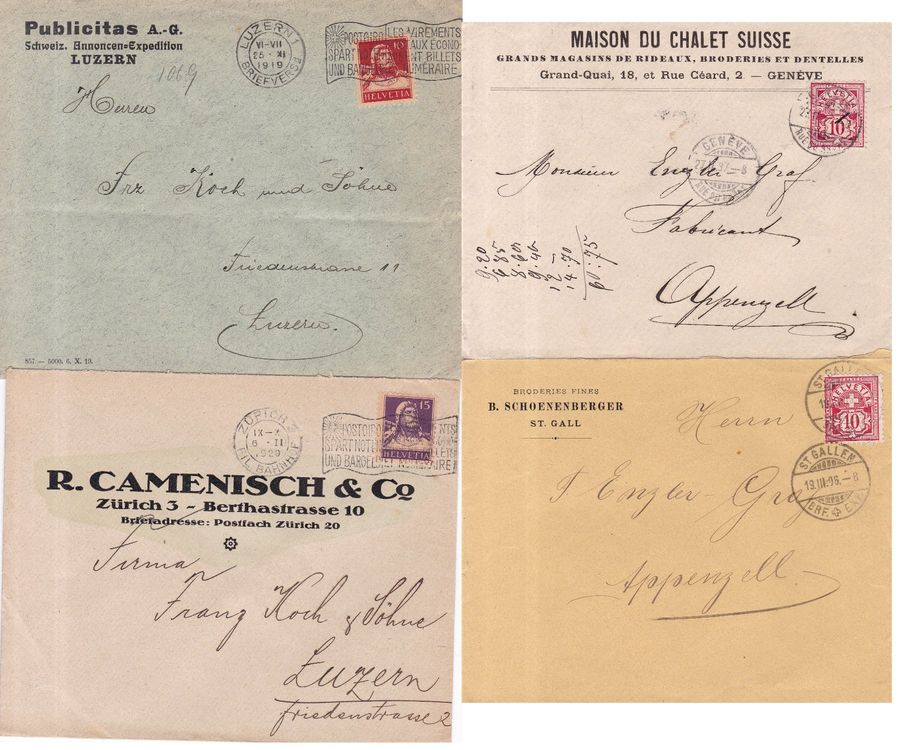 Publicitas A.-G.
Schweiz. Annoncen-Expedition
LUZERN
1069
LUZERN 1
VI-VII
25 · XI
1919
BRIEFVERSD
POSTGIRO LES VIREMENTS
SPART AUX ÉCONO
UND BARGEL NT BILLETS
NUMÉRAIRE
10
HELVETIA
Herren
Frz Koch und Söhne
Friedenstrasse 11
Luzern.
857. — 5000. 6. X. 19.
MAISON DU CHALET SUISSE
GRANDS MAGASINS DE RIDEAUX, BRODERIES ET DENTELLES
Grand-Quai, 18, et Rue Céard, 2. — GENÈVE
HELVETIA
10
GENÈVE
Monsieur Enzler Graf
Fabricant
Appenzell
60:75
R. CAMENISCH & Co
Zürich 3 - Berthastrasse 10
Briefadresse: Postfach Zürich 20
ZÜRICH
IX-X
6 · II
1920
FIL. BAHNHOF
POSTGIRO
SPART NOT
UND BARGEL NUMÉRAIRE
15
HELVETIA
Firma
Franz Koch & Söhne
Luzern
Friedenstrasse 2
BRODERIES FINES
B. SCHOENENBERGER
ST. GALL
HELVETIA
10
ST. GALLEN
ST. GALLEN
19.III.96.–8
BRF. EXP.
Herrn
J Enzler-Graf
Appenzell